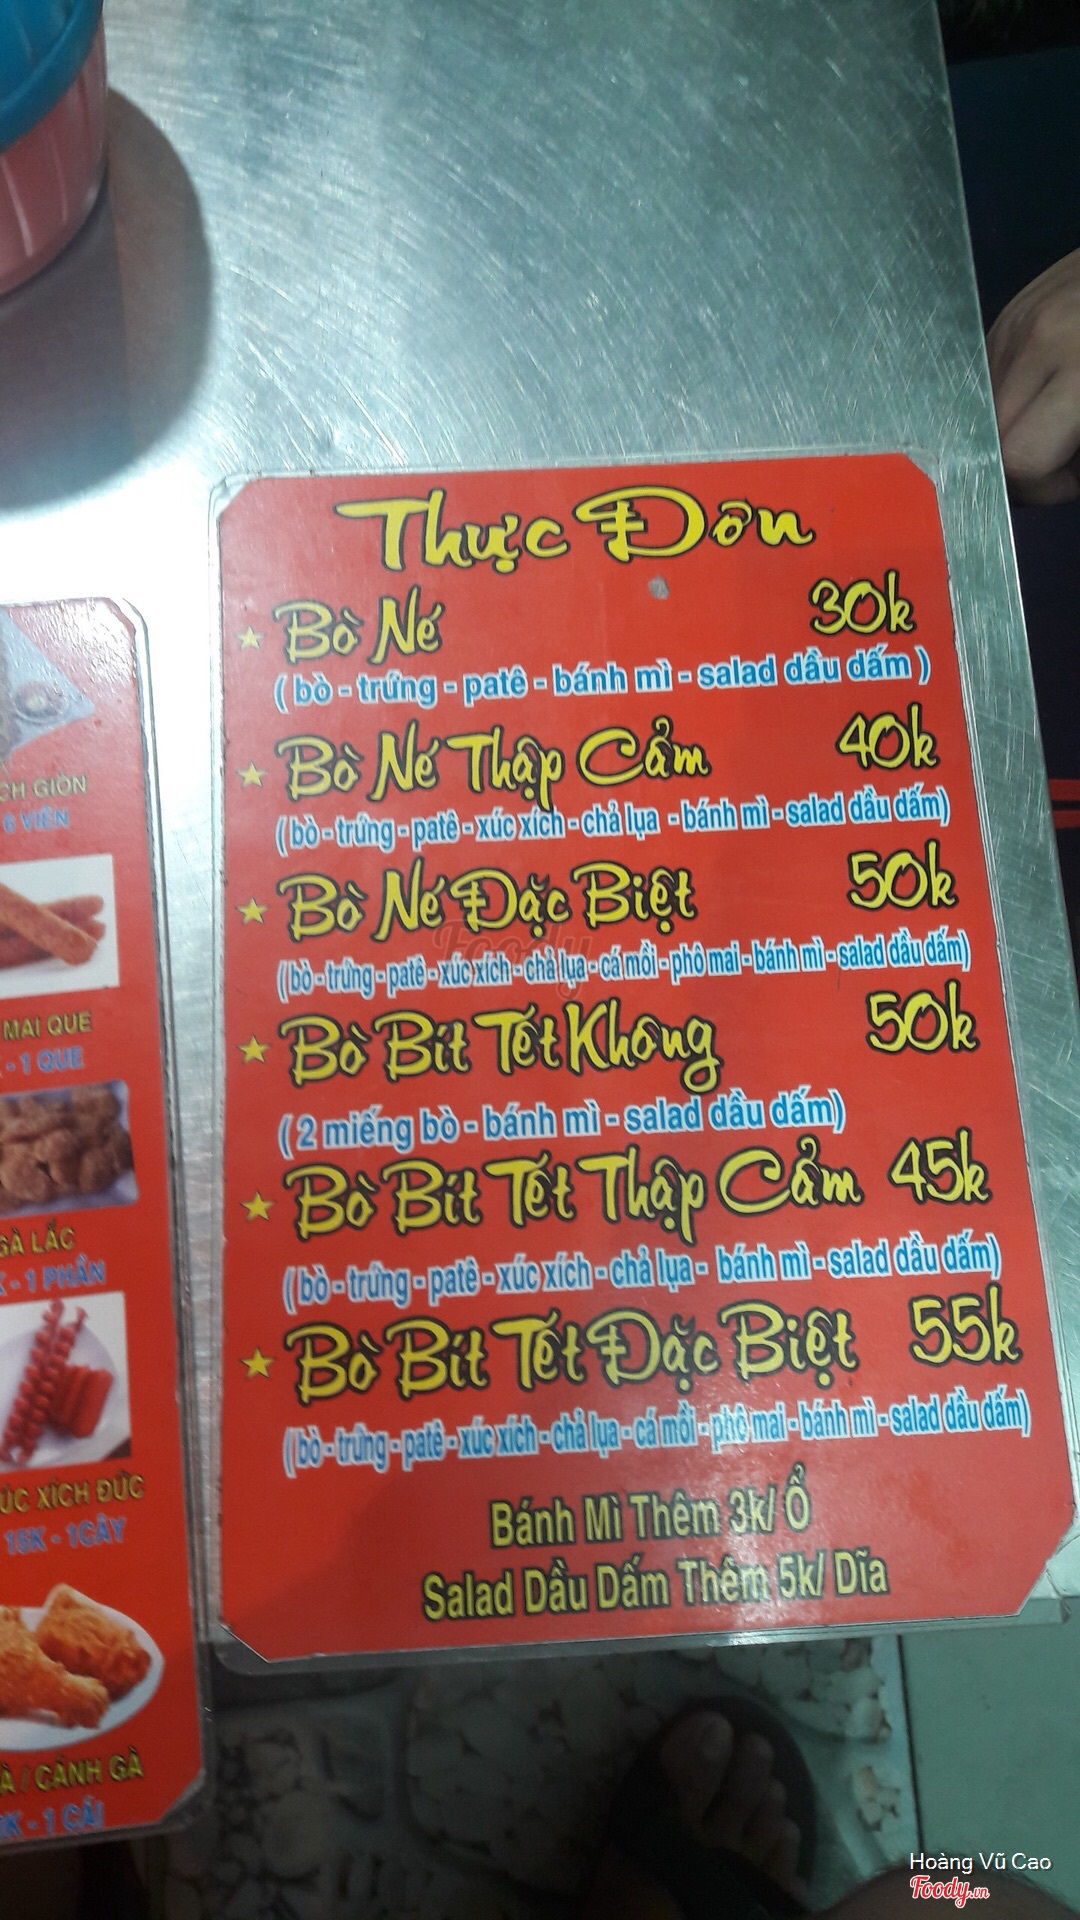 Thực Đơn
Bò Né 30k
( bò - trứng - patê - bánh mì - salad dầu dấm )
Bò Né Thập Cẩm 40k
(bò - trứng - patê - xúc xích - chả lụa - bánh mì - salad dầu dấm)
Bò Né Đặc Biệt 50k
(bò - trứng - patê - xúc xích - chả lụa - cá mồi - phô mai - bánh mì - salad dầu dấm)
Bò Bít Tết Không 50k
( 2 miếng bò - bánh mì - salad dầu dấm)
Bò Bít Tết Thập Cẩm 45k
(bò - trứng - patê - xúc xích - chả lụa - bánh mì - salad dầu dấm)
Bò Bít Tết Đặc Biệt 55k
(bò - trứng - patê - xúc xích - chả lụa - cá mồi - phô mai - bánh mì - salad dầu dấm)
Bánh Mì Thêm 3k/ Ổ
Salad Dầu Dấm Thêm 5k/ Dĩa
GIÒN
6 VIÊN
MAI QUE
- 1 QUE
GÀ LẮC
K - 1 PHẦN
XÍCH ĐỨC
15K - 1CÂY
/ CÁNH GÀ
K - 1 CÁI
Foody
Hoàng Vũ Cao
Foody.vn